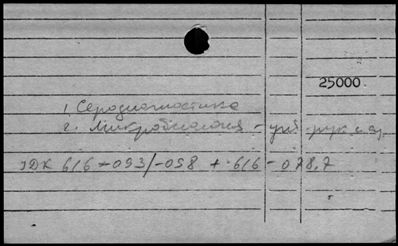 25000
1. Серодиагностика
2. Микробиология - для
УДК 616-093/-098 + 616-078.7